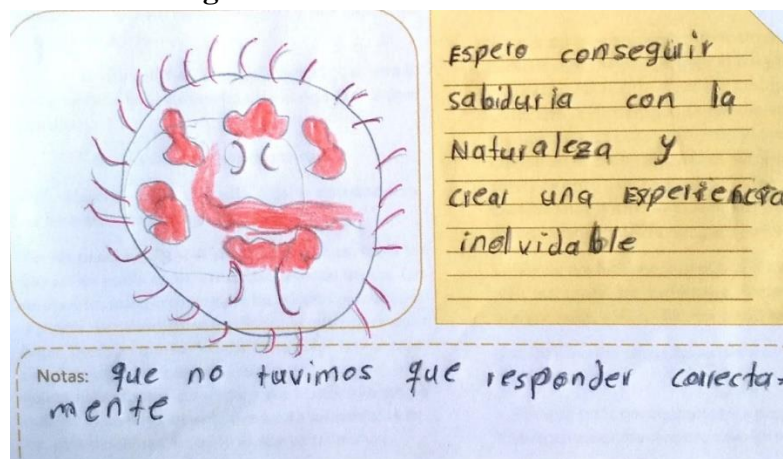 Espero conseguir
sabiduria con la
Naturaleza y
crear una Experiencia
inolvidable
Notas: que no tuvimos que responder correcta-
mente